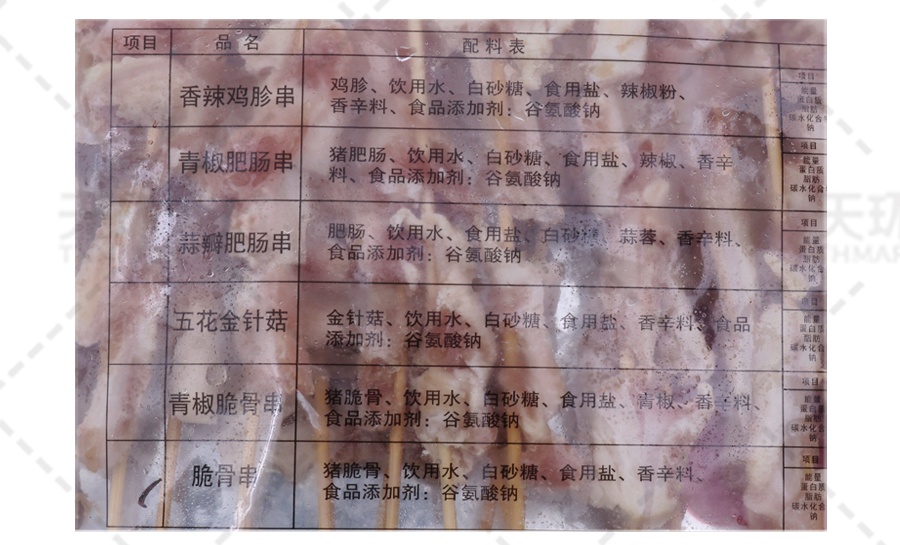 项目 品名 配料表
香辣鸡胗串 鸡胗、饮用水、白砂糖、食用盐、辣椒粉、
香辛料、食品添加剂：谷氨酸钠
项目
能量
蛋白质
脂肪
碳水化合
钠
青椒肥肠串 猪肥肠、饮用水、白砂糖、食用盐、辣椒、香辛
料、食品添加剂：谷氨酸钠
项目
能量
蛋白质
脂肪
碳水化合
钠
蒜瓣肥肠串 肥肠、饮用水、食用盐、白砂糖、蒜蓉、香辛料、
食品添加剂：谷氨酸钠
项目
能量
蛋白质
脂肪
碳水化合
钠
五花金针菇 金针菇、饮用水、白砂糖、食用盐、香辛料、食品
添加剂：谷氨酸钠
项目
能量
蛋白质
脂肪
碳水化合
钠
青椒脆骨串 猪脆骨、饮用水、白砂糖、食用盐、青椒、香辛料、
食品添加剂：谷氨酸钠
项目
能量
蛋白质
脂肪
碳水化合
钠
脆骨串 猪脆骨、饮用水、白砂糖、食用盐、香辛料、
食品添加剂：谷氨酸钠
项目
能量
蛋白质
脂肪
碳水化合
钠